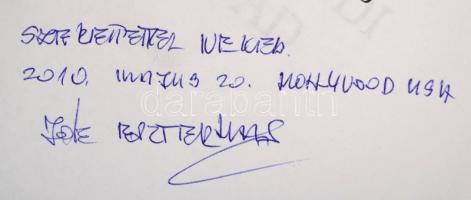 SZERETETTEL NEKED.
2010. MÁJUS 20. HOLLYWOOD USA
JOE ESZTERHAS
darabanth